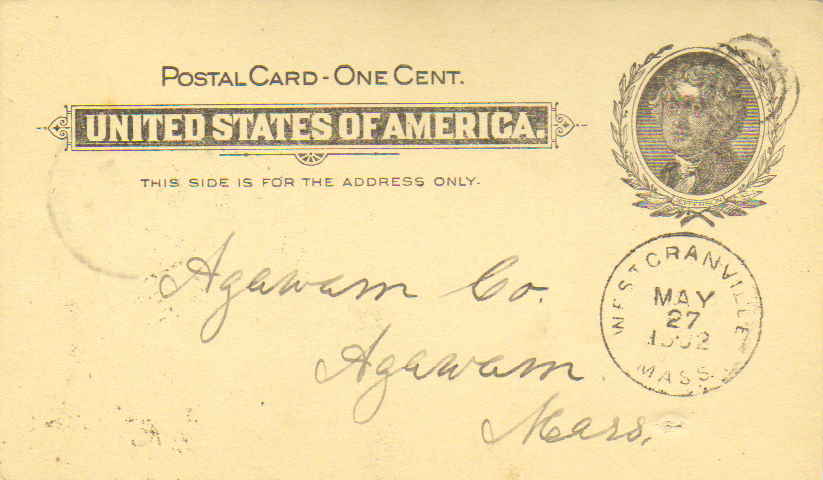 POSTAL CARD - ONE CENT.
UNITED STATES OF AMERICA.
THIS SIDE IS FOR THE ADDRESS ONLY.
JEFFERSON
WEST GRANVILLE
MAY
27
1902
MASS.
Agawam Co.
Agawam
Mass.